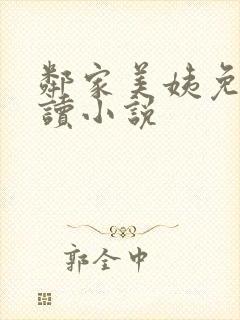 鄰家美姨免
讀小說
郭全中